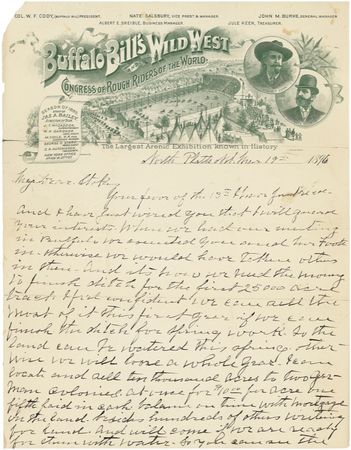 COL. W. F. CODY, BUFFALO BILL, PRESIDENT. NATE SALSBURY, VICE PREST & MANAGER. JOHN M. BURKE, GENERAL MANAGER.
ALBERT E. SHEIBLE, BUSINESS MANAGER. JULE KEEN, TREASURER.
Buffalo Bill's Wild West
Congress of Rough Riders of the World.
JAS. A. BAILEY
The Largest Arenic Exhibition known in History.
North Platte Neb Mar 19th 1896
My Dear
Your favor of the 13th
And I have just wired you that I will guard
your interests. When we had our meeting
in we counted you and Mr Foote
in otherwise we would have taken others
in then. And it's how we need the money
to finish ditch for the first 25000 acre
tract. I feel confident we can sell the
most of it this first year if we can
finish the ditch for Spring work. So the
land can be watered this spring. Other-
wise we will lose a whole year. I can
locate and sell ten thousand acres to two Ger-
man colonies at once for per acre one
fifth paid in cash balance on time with mortgage
on the land. Besides hundreds of others writing
for land. And will come if we are ready
for them with water. So you can see the